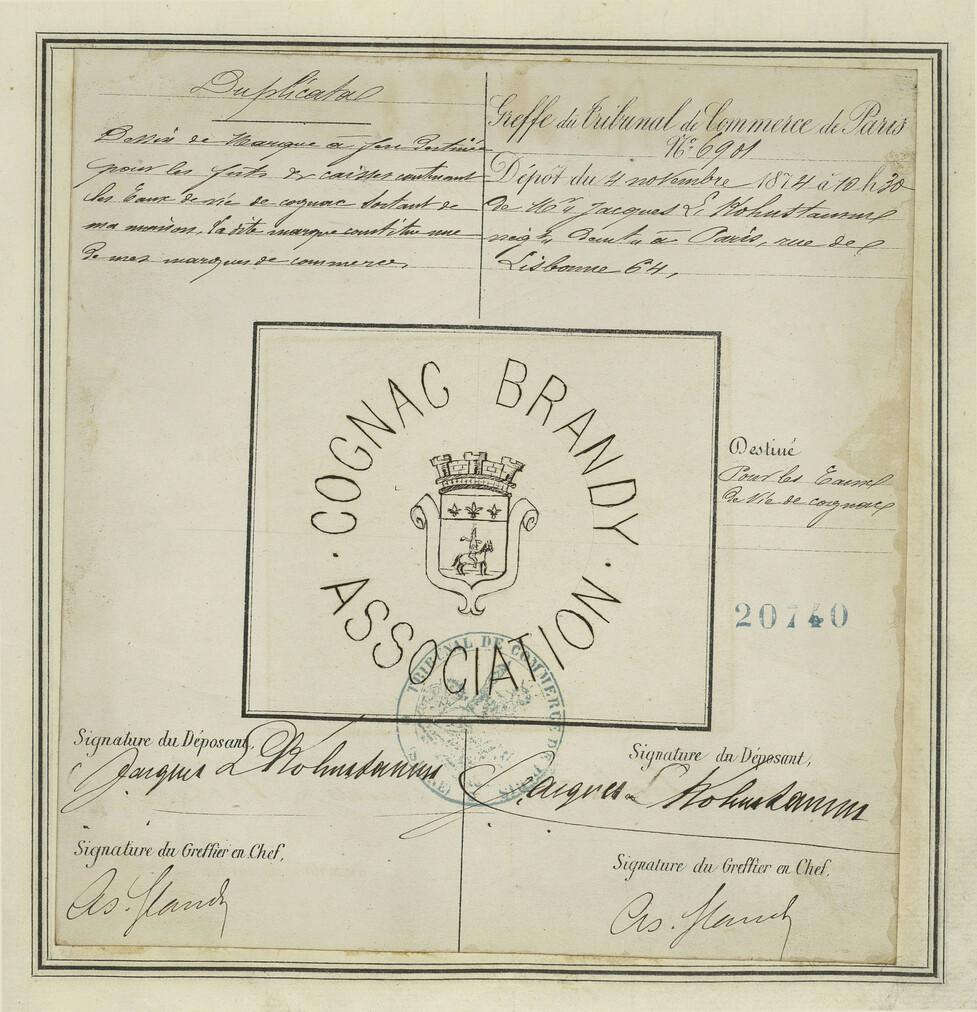 Duplicata
Dessin de Marque à feu destinée
pour les fûts & caisses contenant
les Eaux de vie de cognac sortant de
ma maison. La dite marque constitue une
de mes marques de commerce.
Greffe du Tribunal de Commerce de Paris
No. 6901
Dépôt du 4 novembre 1874 à 10 h 30
de Mr. Jacques L. Kohnstamm
négt. demt. à Paris, rue de
Lisbonne 64,
COGNAC BRANDY
· ASSOCIATION ·
Destiné
Pour les Eaux
de Vie de cognac
20740
TRIBUNAL DE COMMERCE DE PARIS
(SEINE)
Signature du Déposant,
Jacques L Kohnstamm
Signature du Déposant,
Jacques L Kohnstamm
Signature du Greffier en Chef,
Signature du Greffier en Chef,